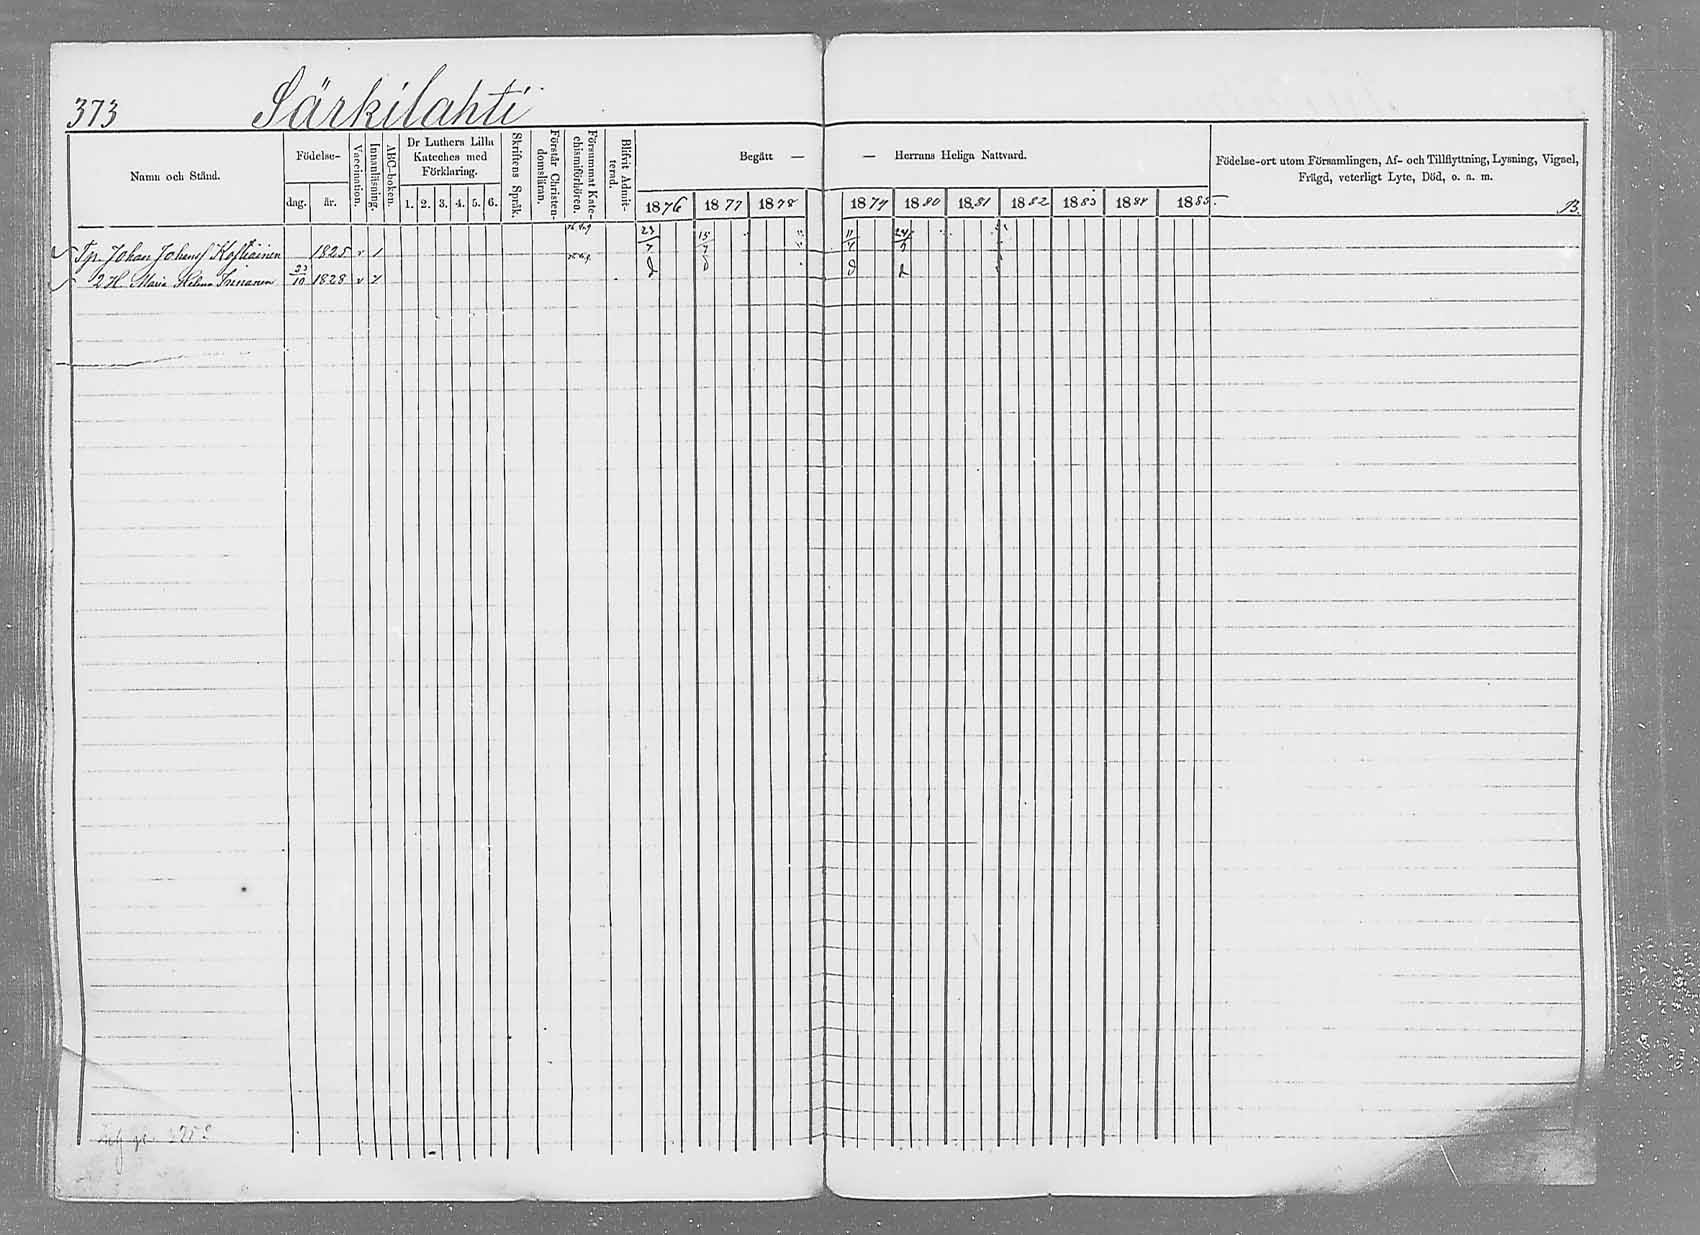 373 Särkilahti
Namn och Stånd.
Födelse-
dag. år.
Vaccination.
Innanläsning.
ABC-boken.
Dr Luthers Lilla
Kateches med
Förklaring.
1. 2. 3. 4. 5. 6.
Skriftens Språk.
Förstår Christen-
domsläran.
Försummat Kate-
chismiförhören.
Blifvit Admit-
terad.
Begått — — Herrans Heliga Nattvard.
1876 1877 1878 1879 1880 1881 1882 1883 1884 1885
Födelse-ort utom Församlingen, Af- och Tillflyttning, Lysning, Vigsel,
Frägd, veterligt Lyte, Död, o. a. m.
B.
Johan Johans Kostiainen 1825 v 1 23/7 15/7 11/7 24/7
2 H Maria Helena Innanen 23/10 1828 v 7 d d d d